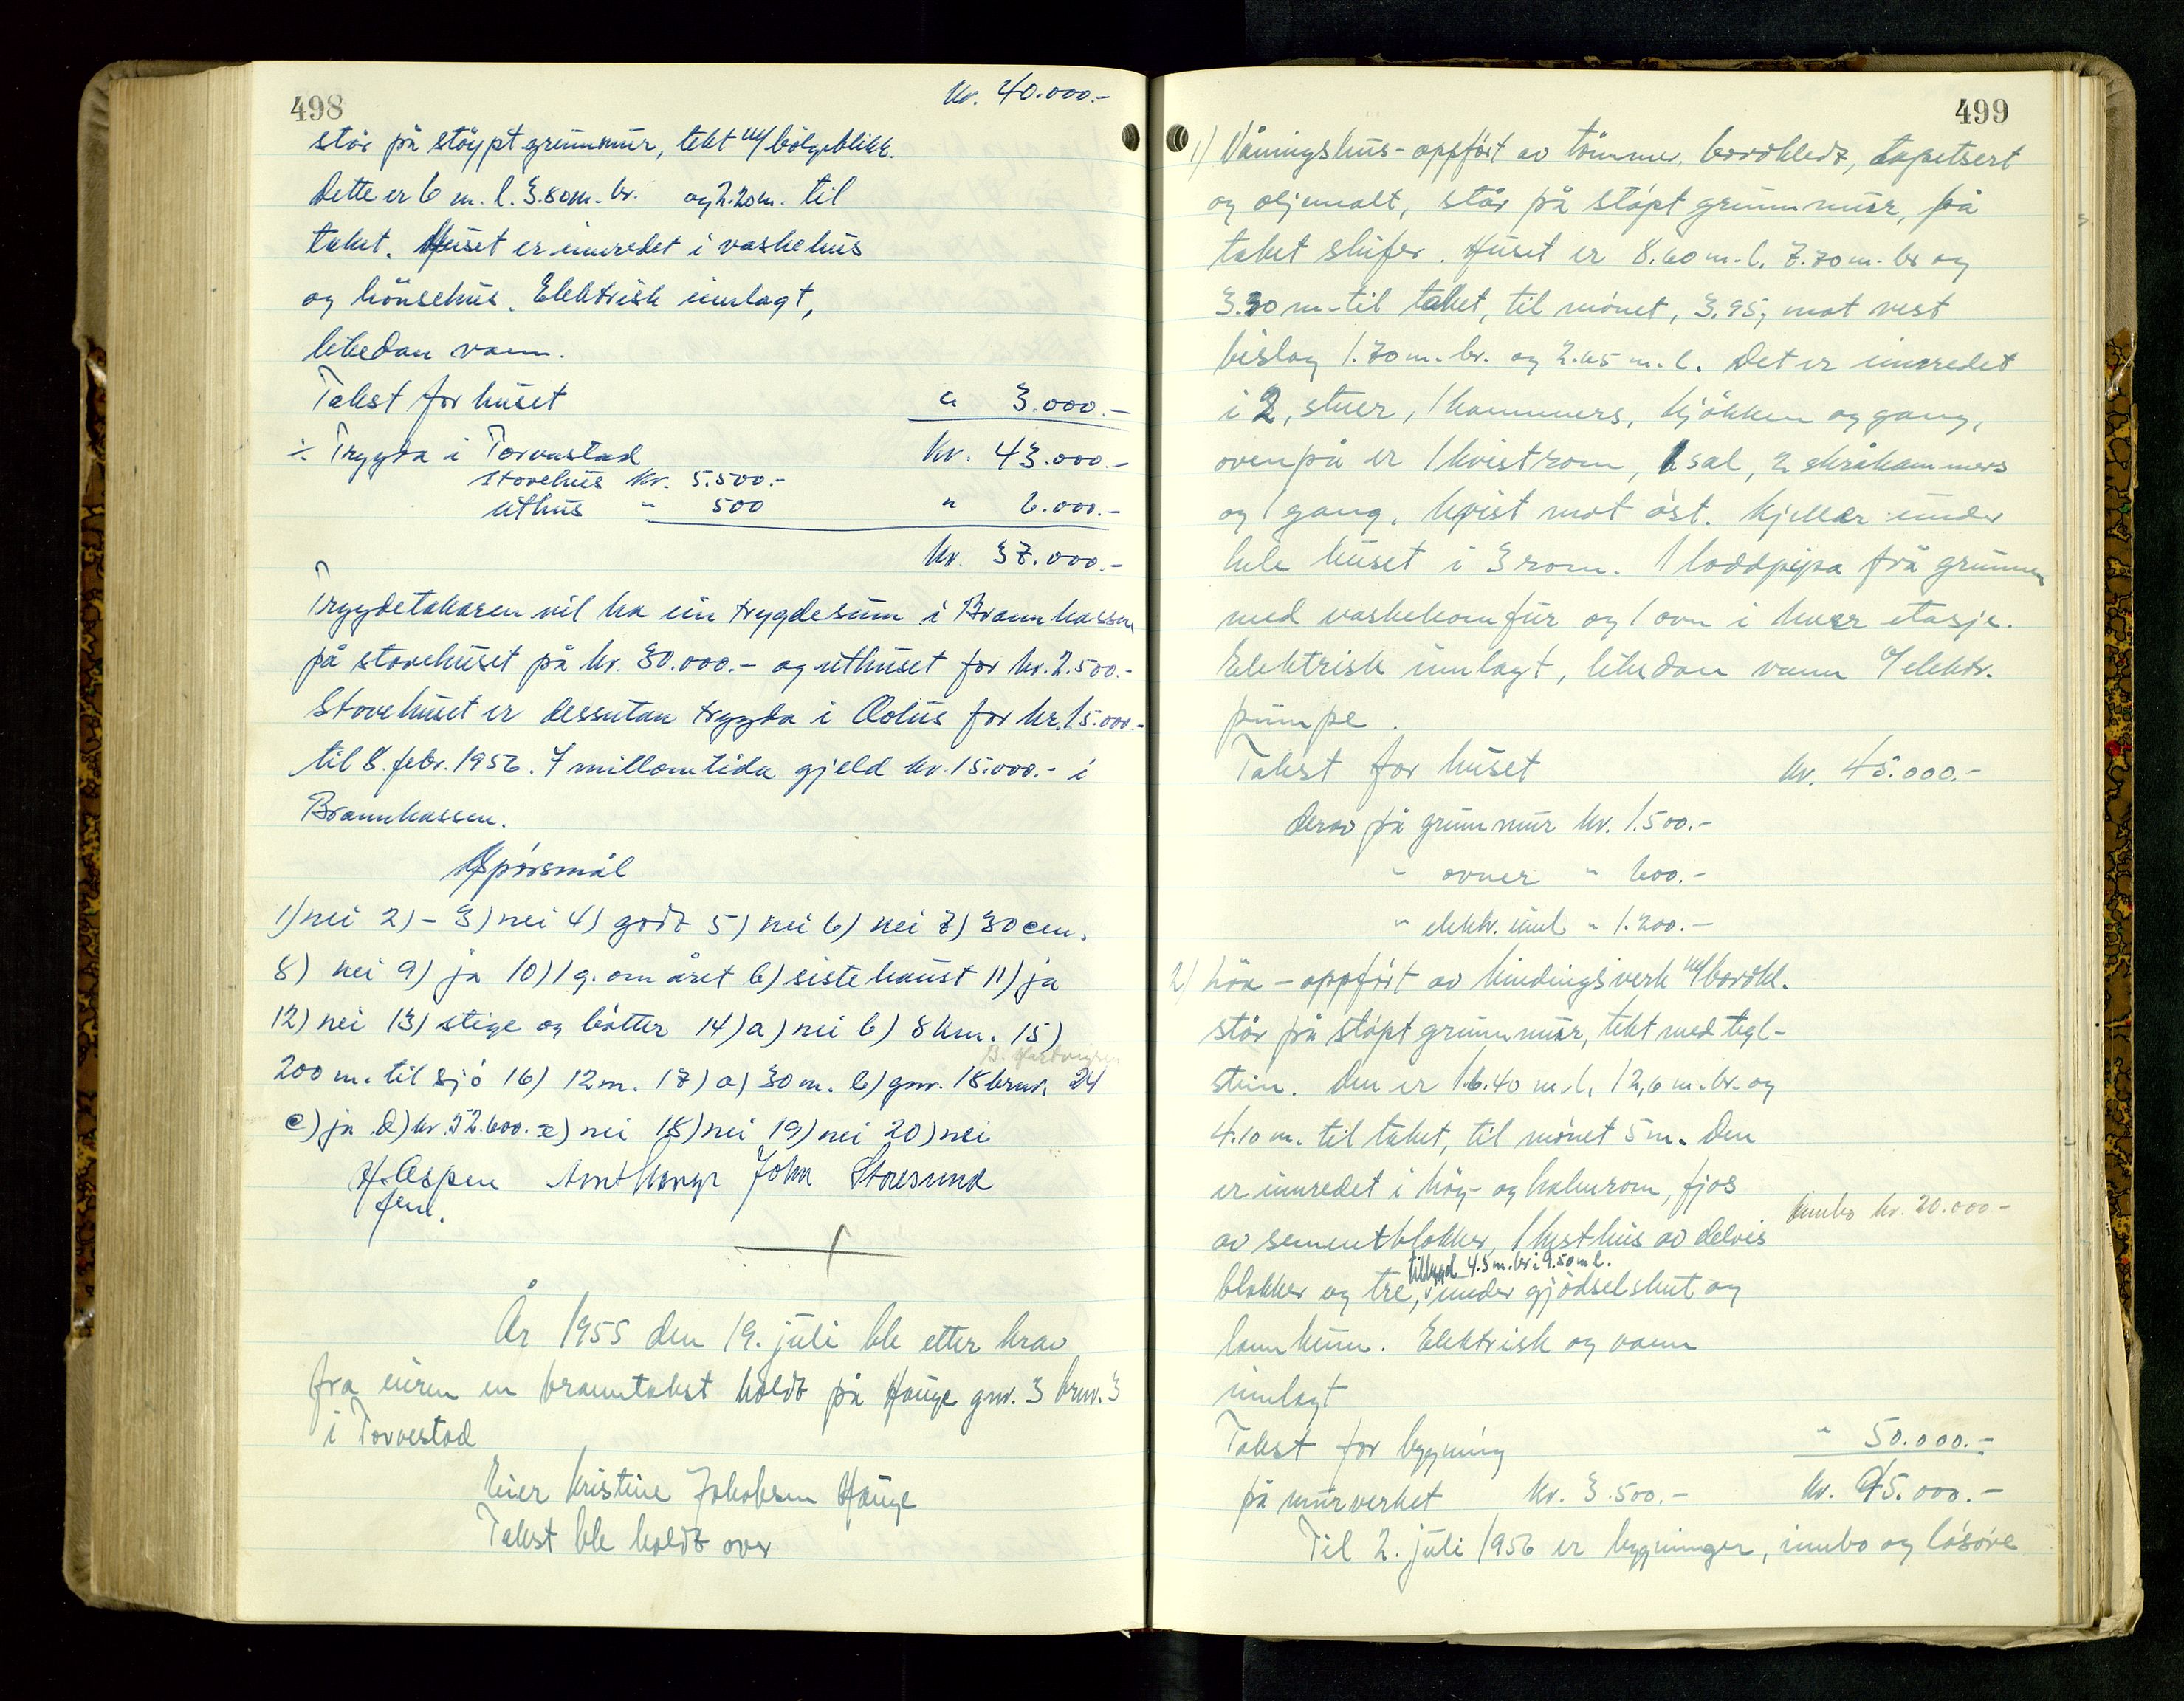 498
kr. 40.000.-
står på stöypt grunnmur, tekt m/bölgeblikk.
Dette er 6 m. l. 3.80 m. br. og 2.20 m. til
taket. Huset er innredet i vaskehus
og hönsehus. Elektrisk innlagt,
likedan vann.
Takst for huset " 3.000.-
÷ Trygda i Torvastad kr. 43.000.-
Stovehus kr. 5.500.-
uthus " 500 " 6.000.-
kr. 37.000.-
Trygdetakaren vil ha ein trygdesum i Brannkassen
på stovehuset på kr. 30.000.- og uthuset for kr. 2.500.-
Stovehuset er dessutan trygda i Æolus for kr. 15.000.-
til 8. febr. 1956. I millomtida gjeld kr. 15.000.- i
Brannkassen.
Spörsmål
1) nei 2) - 3) nei 4) godt 5) nei 6) nei 7) 30 cm.
8) nei 9) ja 10) 1 g. om året b) siste haust 11) ja
12) nei 13) stige og bötter 14) a) nei b) 8 km. 15)
B. Hartvigsen
200 m. til sjö 16) 12 m. 17) a) 30 m. b) gnr. 18 bruv. 24
c) ja d) kr. 32.600. e) nei 18) nei 19) nei 20) nei
H. Aspen John Storesund
fem.
År 1955 den 19. juli ble etter krav
fra eieren en branntakst holdt på Hauge gnr. 3 brnr. 3
i Torvestad
Eier Kristine Jakobsen Hauge
Takst ble holdt over
499
1) Våningshus - oppfört av tömmer, bordkledt, tapetsert
og oljemalt, står på stöpt grunnmur, på
taket skifer. Huset er 8.60 m. l. 7.70 m. br og
3.30 m. til taket, til mönet, 3.95, mot vest
bislag 1.70 m. br. og 2.65 m. l. Det er innredet
i 2, stuer, 1 kammers, kjökken og gang,
ovenpå er 1 kvistrom, 1 sal, 2 skråkammers
og 1 gang. Kvist mot öst. Kjeller under
hele huset i 3 rom. 1 loddpipa frå grunnen
med vaskekomfur og 1 ovn i hver etasje.
Elektrisk innlagt, likedan vann o/ elektr.
pumpe.
Takst for huset kr. 45.000.-
derav på grunnmur kr. 1.500.-
" ovner " 600.-
" elektr. innl. " 1.200.-
2) Löa - oppfört av bindingsverk m/bordkl.
står på stöpt grunnmur, tekt med tegl-
stein. Den er 16.40 m. l. 12,6 m. br. og
4.10 m. til taket, til mönet 5 m. Den
er innredet i höy- og halmrom, fjos
innbo kr. 20.000-
av sementblokker, 1 hesthus av delvis
tilbygd 4.5 m. br i 9.50 m l.
blokker og tre, under gjödselskut og
lannkum. Elektrisk og vann
innlagt
Takst for bygning " 50.000.-
på murverket kr. 3.500.- kr. 95.000.-
Til 2. juli 1956 er bygninger, innbo og lösöre